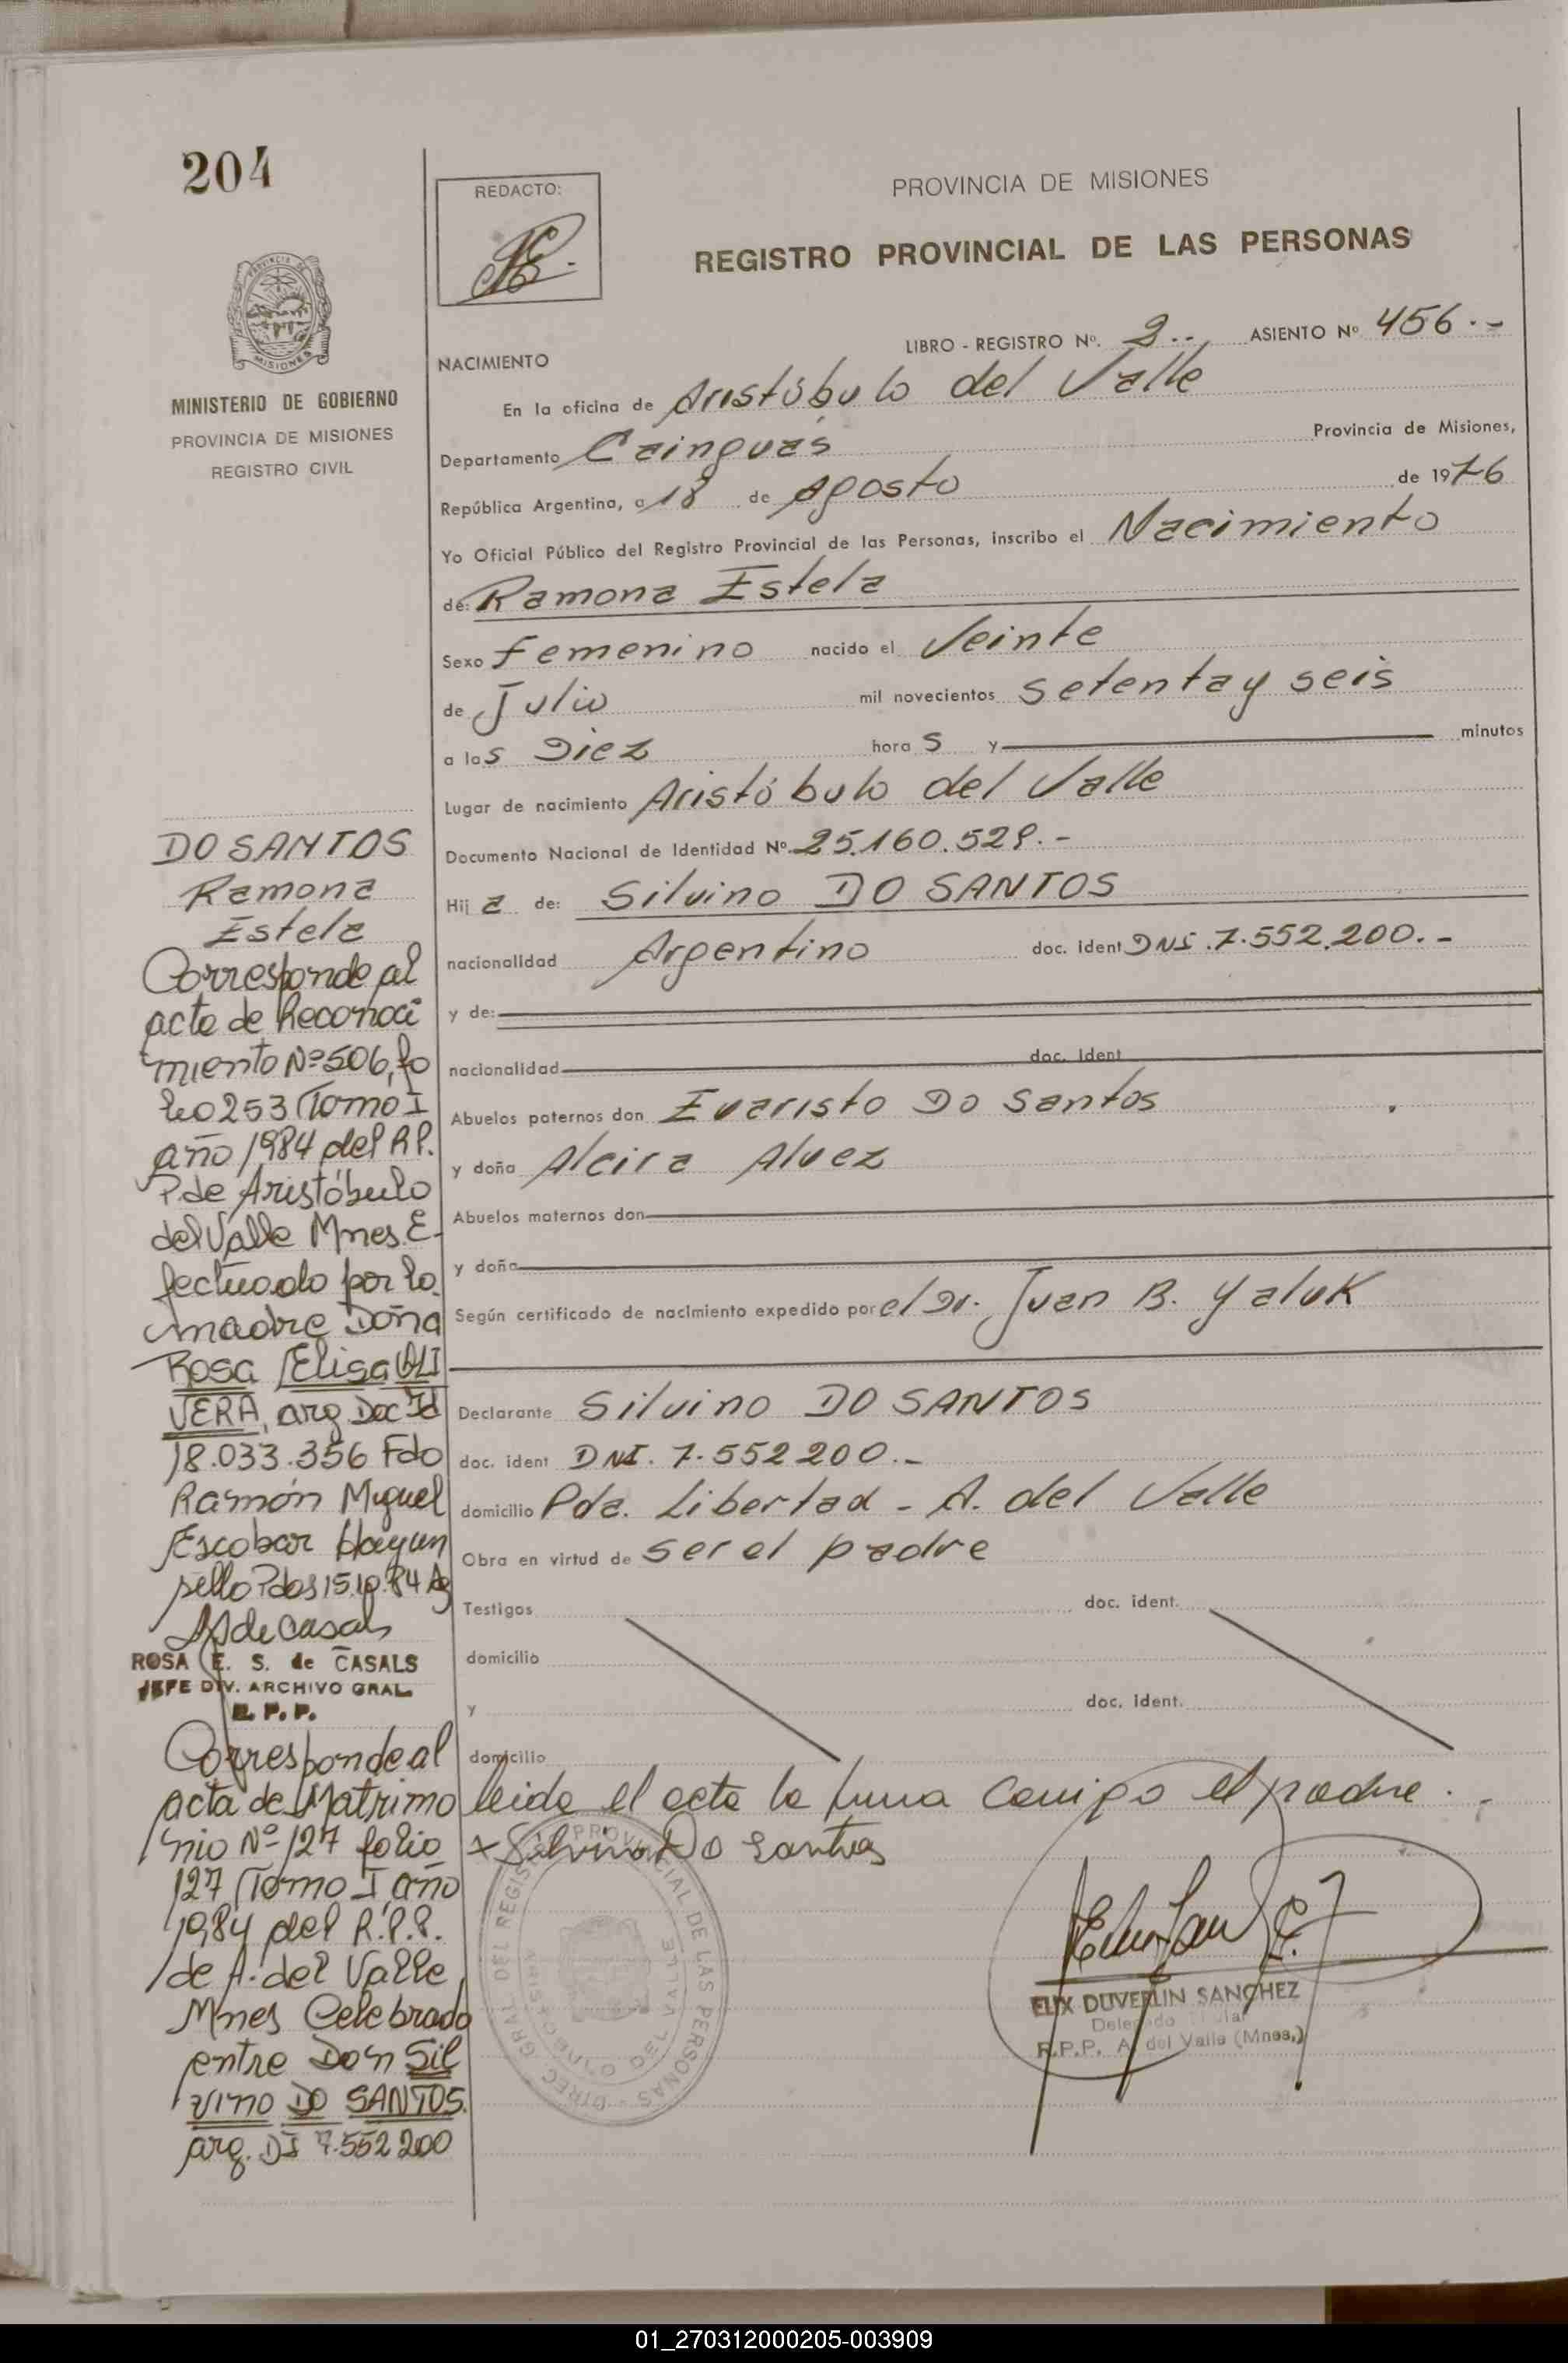 204
REDACTO:
PROVINCIA DE MISIONES
REGISTRO PROVINCIAL DE LAS PERSONAS
PROVINCIA DE
MISIONES
MINISTERIO DE GOBIERNO
PROVINCIA DE MISIONES
REGISTRO CIVIL
LIBRO - REGISTRO Nº. 2.-. ASIENTO Nº 456.-
NACIMIENTO
En la oficina de Aristóbulo del Valle
Departamento Cainguas Provincia de Misiones,
República Argentina, a 18 de Agosto de 1976
Yo Oficial Público del Registro Provincial de las Personas, inscribo el Nacimiento
de: Ramona Estela
Sexo femenino nacido el Veinte
de Julio mil novecientos setenta y seis
a las Diez horas y minutos
Lugar de nacimiento Aristóbulo del Valle
Documento Nacional de Identidad Nº. 25.160.529.-
Hija de: Silvino DO SANTOS
nacionalidad Argentino doc. ident DNI.7.552.200.-
y de:
nacionalidad doc. ident
Abuelos paternos don Evaristo Do Santos
y doña Alcira Alvez
Abuelos maternos don
y doña
Según certificado de nacimiento expedido por el Dr. Juan B. Yaluk
Declarante Silvino DO SANTOS
doc. ident DNI. 7.552200.-
domicilio Pda. Libertad - A. del Valle
Obra en virtud de ser el padre
Testigos doc. ident.
domicilio
y doc. ident.
domicilio
leida el acta la firma conmigo el padre.
x Silvino Do Santos
DIREC. GRAL DEL REGISTRO PROVINCIAL DE LAS PERSONAS
ARISTOBULO DEL VALLE
ELIX DUVERLIN SANCHEZ
Delegado Titular
R.P.P. A. del Valle (Mnes.)
DO SANTOS
Ramona
Estela
Corresponde al
acta de Reconoci
miento Nº 506, fo
lio 253 Tomo I
año 1984 del R.P.
P. de Aristóbulo
del Valle Mnes. E-
fectuado por la
madre Doña
Rosa Elisa OLI
VERA, arg Doc Id
18.033.356 Fdo
Ramón Miguel
Escobar Hay un
sello Pdas 15.10.84
ROSA E. S. de CASALS
JEFE DIV. ARCHIVO GRAL.
R. P. P.
Corresponde al
acta de Matrimo
nio Nº 127 folio
127 Tomo I año
1984 del R.P.P.
de A. del Valle
Mnes Celebrado
entre Don Sil
vino DO SANTOS.
arg. DI 7.552200
01_270312000205-003909